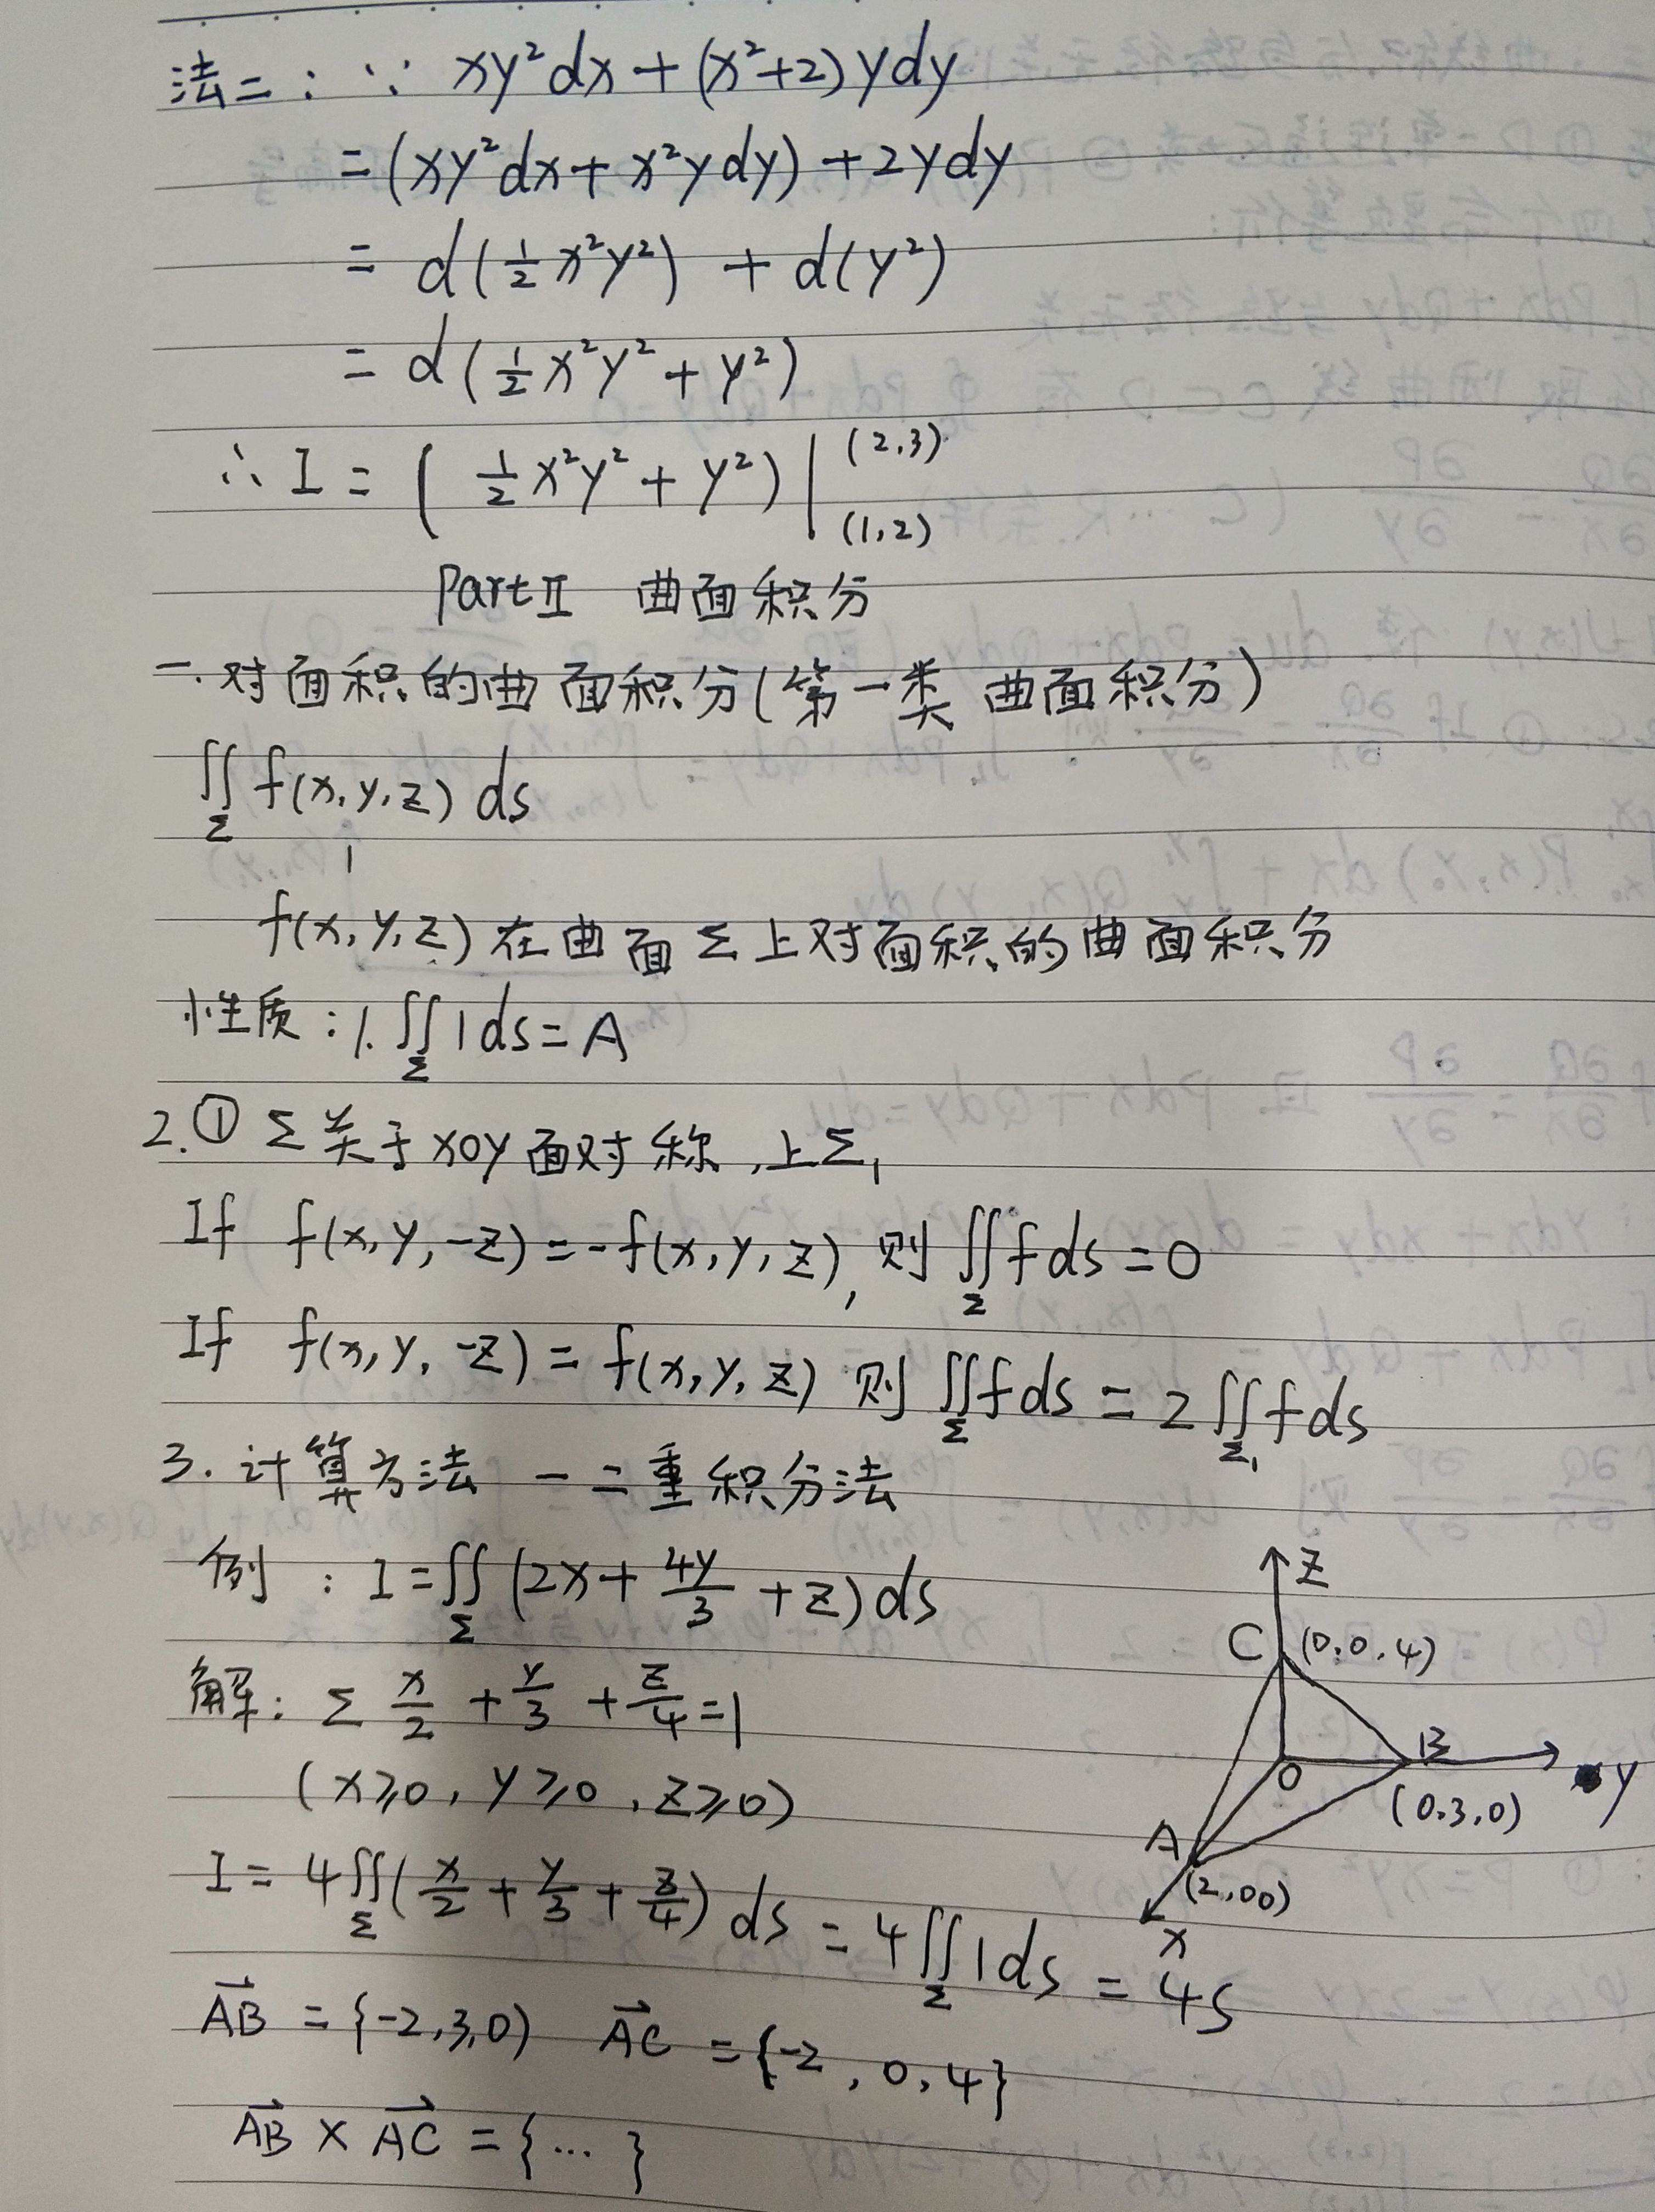 法二：∵ xy²dx+(x²+2)ydy
=(xy²dx+x²ydy)+2ydy
= d(½x²y²) + d(y²)
= d(½x²y²+y²)
∴ I = (½x²y²+y²)|(1,2)^(2,3)
Part II 曲面积分
一.对面积的曲面积分(第一类曲面积分)
∬_Σ f(x,y,z) ds
f(x,y,z)在曲面Σ上对面积的曲面积分
性质：1.∬_Σ 1ds=A
2.① Σ关于xoy面对称,上Σ₁
If f(x,y,-z)=-f(x,y,z),则∬_Σ fds=0
If f(x,y,-z)=f(x,y,z) 则∬_Σ fds=2∬_Σ₁ fds
3.计算方法一二重积分法
例：I=∬_Σ (2x+4y/3+z)ds
解：Σ x/2+y/3+z/4=1
(x≥0,y≥0,z≥0)
I=4∬_Σ(x/2+y/3+z/4)ds=4∬_Σ 1ds=4S
→AB={-2,3,0) →AC={-2,0,4}
→AB×→AC={…}
Z
C (0,0,4)
B
O
Y
(0,3,0)
A
(2,00)
X